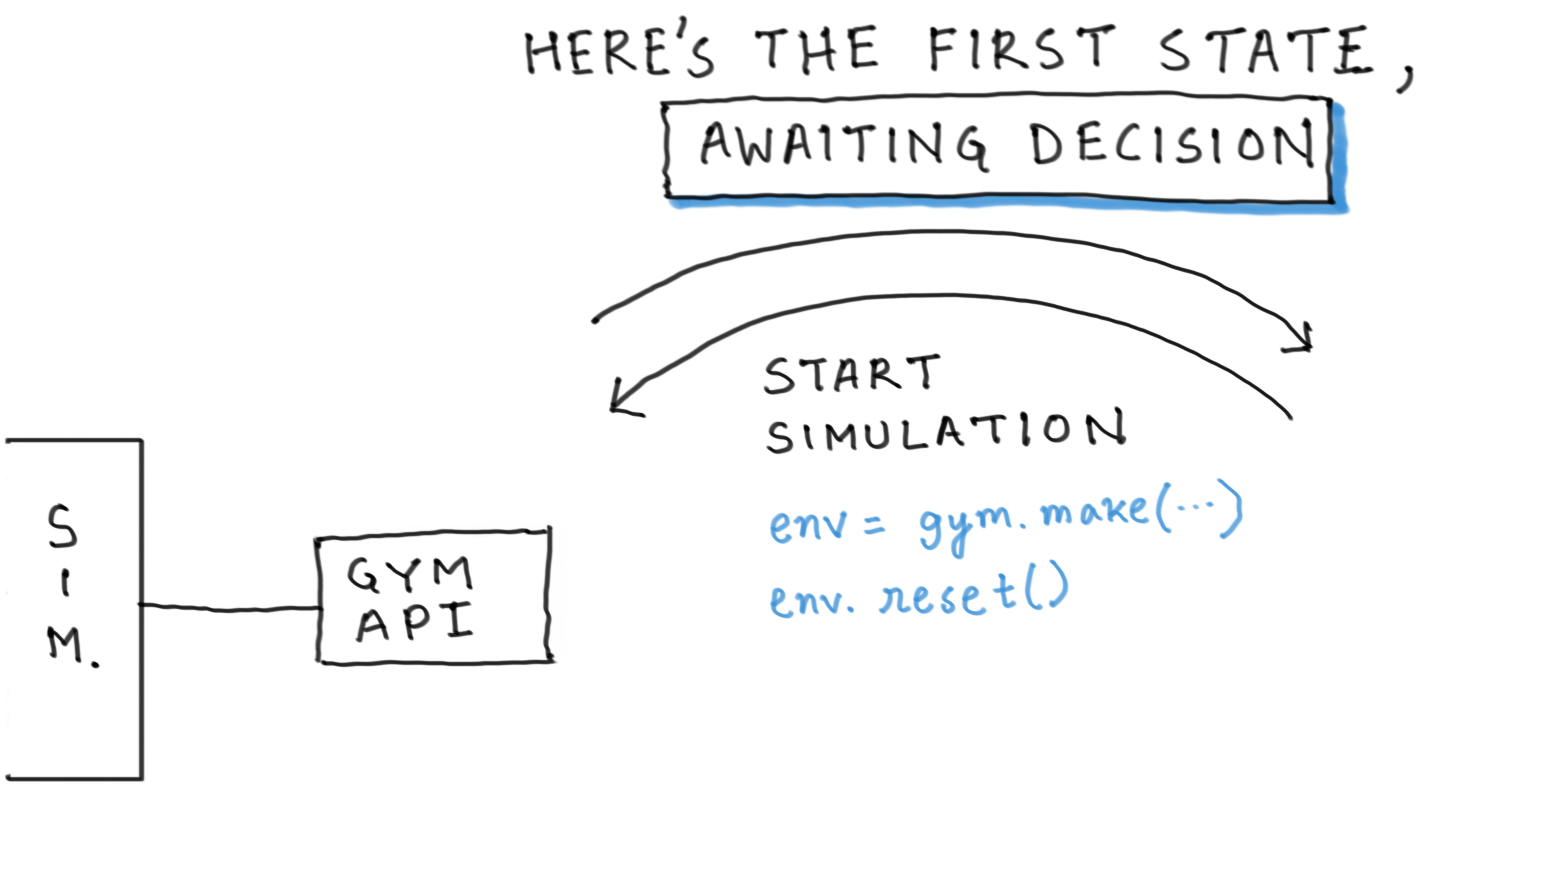 HERE'S THE FIRST STATE,
AWAITING DECISION
START
SIMULATION
env = gym.make(...)
env.reset()
SIM.
GYM
API